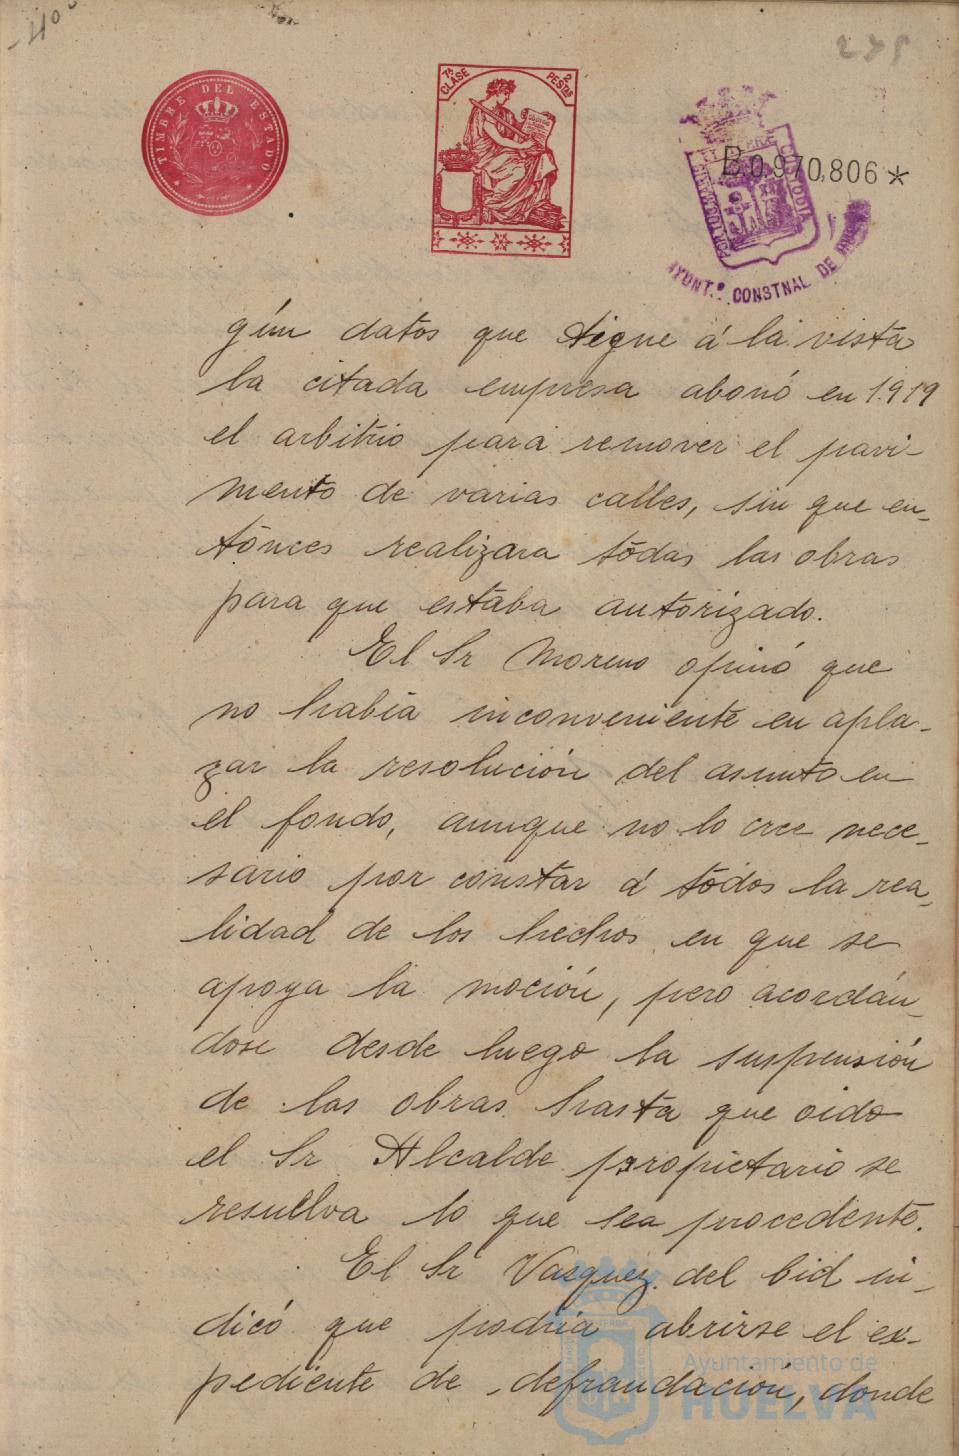 275
TIMBRE DEL ESTADO
7ª CLASE
2 PESTAS
B.0.970,806*
PORTUS MARIS ET TERRE CUSTODIA
AYUNT.º CONSTNAL DE HUELVA
gún datos que tiene á la vista
la citada empresa abonó en 1.919
el arbitrio para remover el pavi-
mento de varias calles, sin que en-
tónces realizara tódas las obras
para que estaba autorizado.
El Sr Moreno opinó que
no habia inconveniente en apla-
zar la resolución del asunto en
el fondo, aunque no lo cree nece-
sario por constar á tódos la rea-
lidad de los hechos en que se
apoya la moción, pero acordán-
dose desde luego la suspensión
de las obras hasta que oido
el Sr Alcalde propietario se
resuelva lo que sea procedente.
El Sr Vasquez del Cid in-
dicó que podria abrirse el ex-
pediente de defraudación, donde
Ayuntamiento de
HUELVA